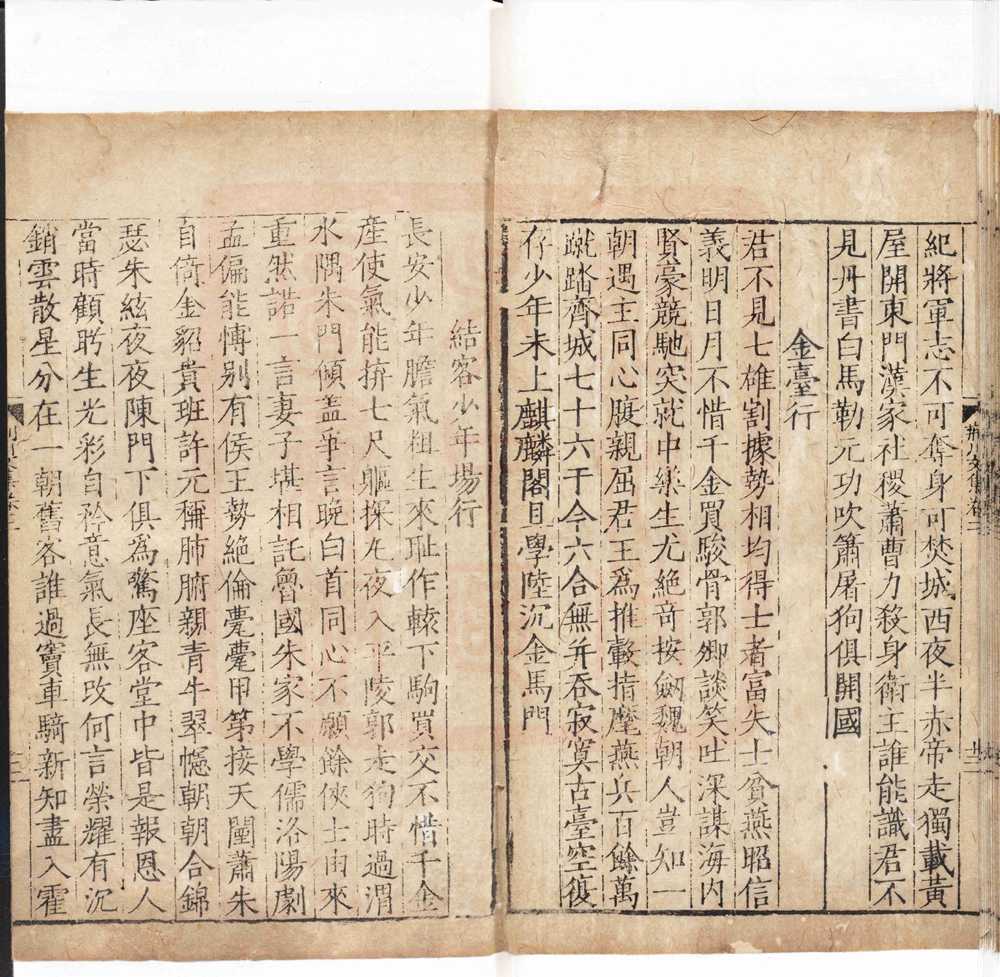 紀將軍志不可奪身可焚城西夜半赤帝走獨載黃
屋開東門漢家社稷蕭曹力殺身衛主誰能識君不
見丹書白馬勒元功吹簫屠狗俱開國
金臺行
君不見七雄割據勢相均得士者富失士貧燕昭信
義明日月不惜千金買駿骨郭卿談笑吐深謀海内
賢豪競馳突就中樂生尤絕奇按劒魏朝人豈知一
朝遇主同心腹親屈君王爲推轂指麾燕兵百餘萬
蹴踏齊城七十六于今六合無并吞寂寞古臺空復
存少年未上麒麟閣且學陸沉金馬門
結客少年場行
長安少年膽氣粗生來耻作轅下駒買交不惜千金
產使氣能拚七尺軀探丸夜入平陵郭走狗時過渭
水隅朱門傾盖爭言晚白首同心不願餘俠士由來
重然諾一言妻子堪相託魯國朱家不學儒洛陽劇
孟偏能慱别有侯王勢絕倫甍甍甲第接天闉蕭朱
自倚金貂貴班許元稱肺腑親青牛翠幰朝朝合錦
瑟朱絃夜夜陳門下俱爲驚座客堂中皆是報恩人
當時顧盻生光彩自矜意氣長無改何言榮耀有沉
銷雲散星分在一朝舊客誰過竇車騎新知盡入霍